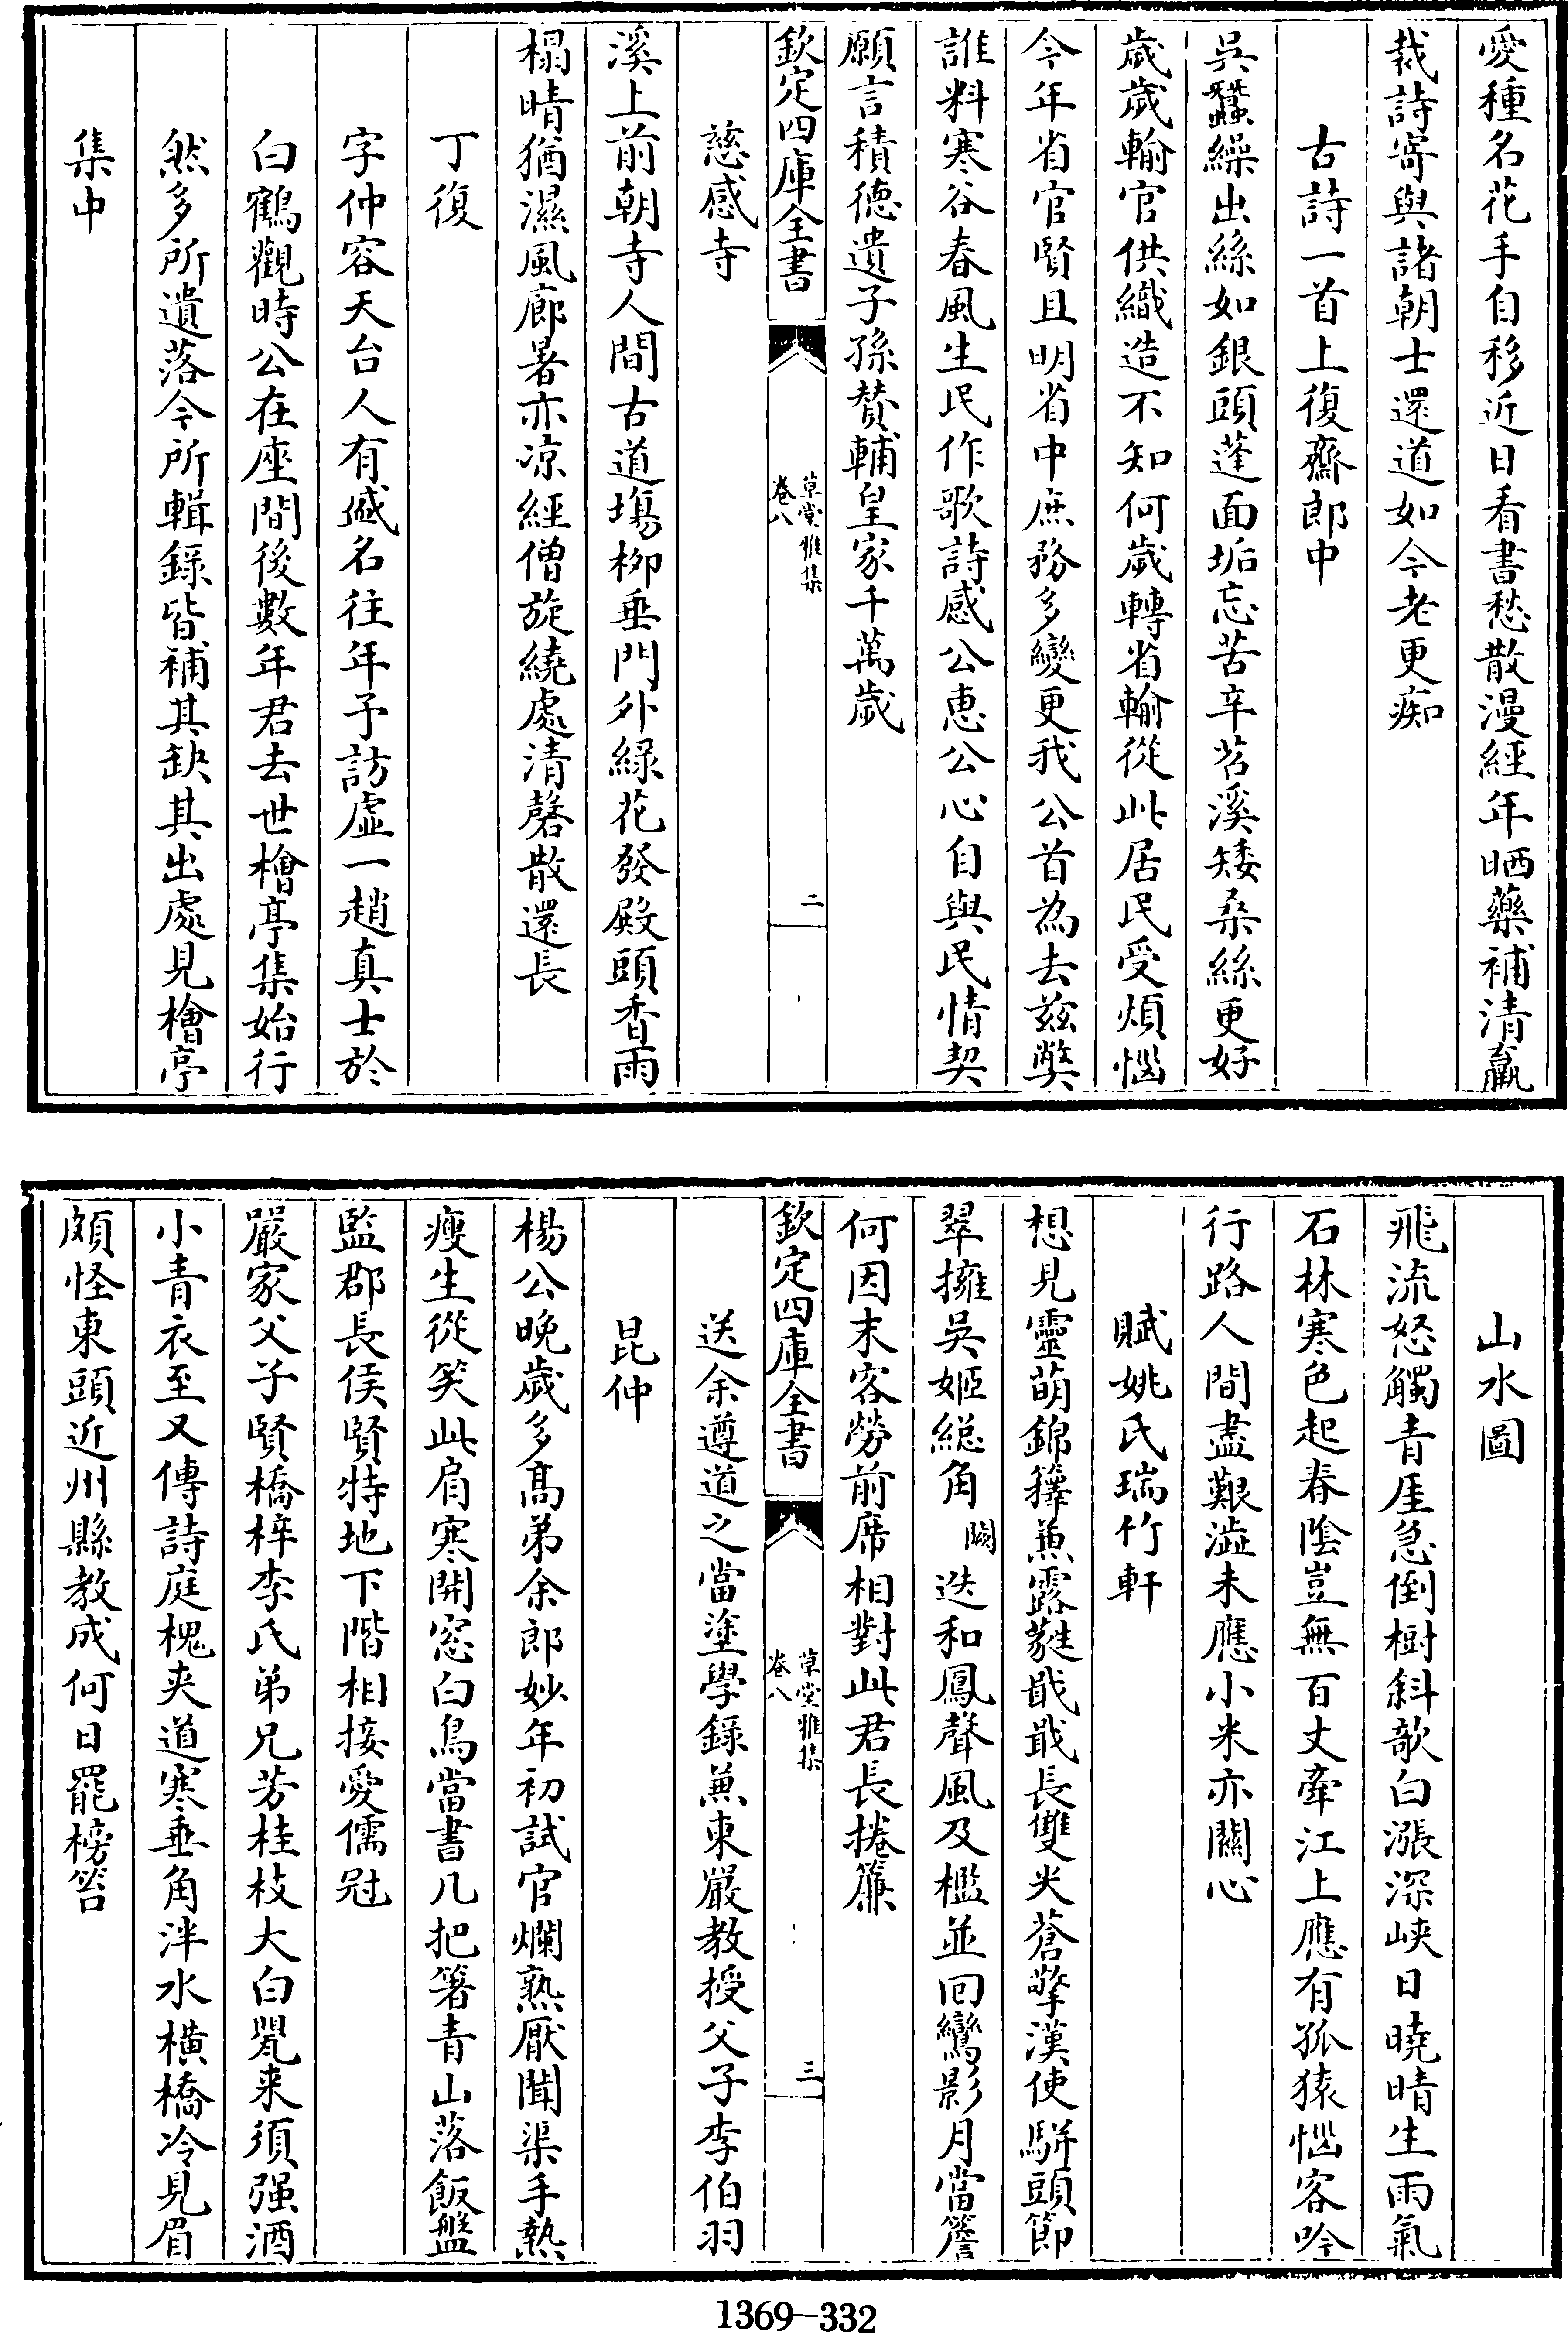 愛種名花手自移近日看書愁散漫經年晒藥補清羸
裁詩寄與諸朝士還道如今老更痴
古詩一首上復齋郎中
吳蠶繰出絲如銀頭蓬面垢忘苦辛苕溪矮桑絲更好
歲歲輸官供織造不知何歲轉省輸從此居民受煩惱
今年省官賢且明省中庶務多變更我公首為去兹弊
誰料寒谷春風生民作歌詩感公恵公心自與民情契
願言積德遺子孫賛輔皇家千萬歲
欽定四庫全書
草堂雅集
卷八
二
慈感寺
溪上前朝寺人間古道塲柳垂門外綠花發殿頭香雨
榻晴猶濕風廊暑亦凉經僧旋繞處清磬散還長
丁復
字仲容天台人有盛名往年予訪虛一趙真士於
白鶴觀時公在座間後數年君去世檜亭集始行
然多所遺落今所輯錄皆補其缺其出處見檜亭
集中
山水圖
飛流怒觸青厓急倒樹斜歆白漲深峽日曉晴生雨氣
石林寒色起春陰豈無百丈牽江上應有孤猿惱客吟
行路人間盡艱澁未應小米亦關心
賦姚氏瑞竹軒
想見靈萌錦籜兼露蕤戢戢長雙尖蒼擎漢使駢頭節
翠擁吳姬総角闕迭和鳳聲風及檻並回鸞影月當簷
何因末客勞前席相對此君長捲簾
欽定四庫全書
草堂雅集
卷八
三
送余遵道之當塗學錄兼柬嚴教授父子李伯羽
昆仲
楊公晚歲多髙弟余郎妙年初試官爛熟厭聞渠手熱
瘦生從笑此肩寒開窓白鳥當書几把箸青山落飯盤
監郡長侯賢特地下階相接愛儒冠
嚴家父子賢橋梓李氏弟兄芳桂枝大白甖来須强酒
小青衣至又傳詩庭槐夾道寒垂角泮水橫橋冷見眉
頗怪東頭近州縣教成何日罷榜笞
1369—332